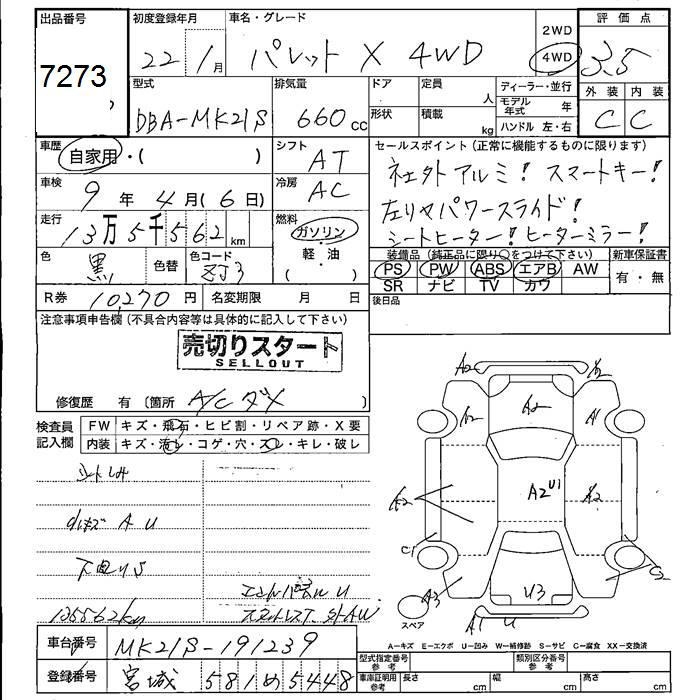 出品番号
7273
初度登録年月
22年1月
車名・グレード
パレット X 4WD
2WD
4WD
評価点
3.5
外装 内装
C C
型式
DBA-MK21S
排気量
660cc
ドア
形状
定員
人
積載
kg
ディーラー・並行
モデル年式 年
ハンドル 左・右
車歴
自家用・( )
シフト
AT
車検
9年4月(6日)
冷房
AC
走行
13万5千562km
燃料
ガソリン
軽・油
( )
色
黒
色替
色コード
ZJ3
R券 10,270円
名変期限 月 日
セールスポイント(正常に機能するものに限ります)
社外アルミ! スマートキー!
左リヤパワースライド!
シートヒーター! ヒーターミラー!
装備品(純正品に限り○をつけて下さい)
PS PW ABS エアB AW
SR ナビ TV カワ
新車保証書
有・無
後日品
注意事項申告欄(不具合内容等は具体的に記入して下さい)
売切りスタート
SELLOUT
修復歴 有〔箇所 A/Cダメ 〕
検査員記入欄
FW キズ・飛石・ヒビ割・リペア跡・X要
内装 キズ・汚レ・コゲ・穴・スレ・キレ・破レ
A U
下回りS
135562km
U
A2
A2
A2
A2
A1
A2
U1
A2
A2
C1
C2
A3
U3
A1
U
スペア
A=キズ E=エクボ U=凹み W=補修跡 S=サビ C=腐食 XX=交換済
車台番号
MK21S-191239
登録番号
宮城 581 め 5448
型式指定番号 参考
類別区分番号 参考
車庫証明用 参考
長さ cm
幅 cm
高さ cm